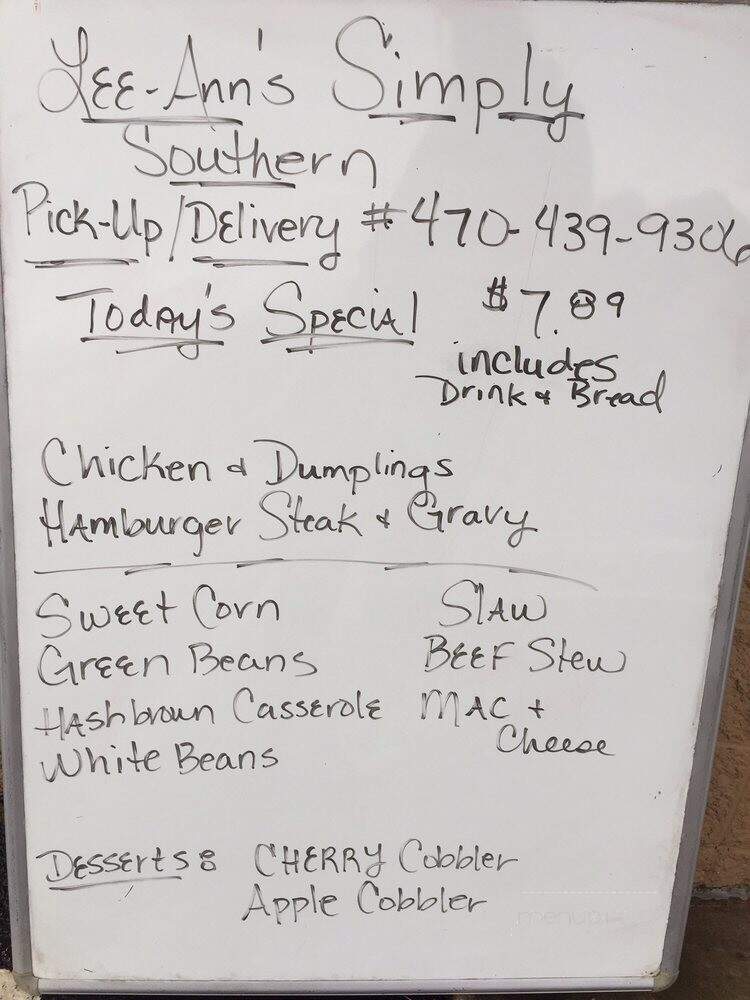 Lee-Ann's Simply
Southern
Pick-Up/Delivery #470-439-9306
Today's Special $7.89
includes
Drink & Bread
Chicken & Dumplings
Hamburger Steak & Gravy
Sweet Corn Slaw
Green Beans Beef Stew
Hashbroun Casserole Mac +
Cheese
White Beans
Desserts: Cherry Cobbler
Apple Cobbler